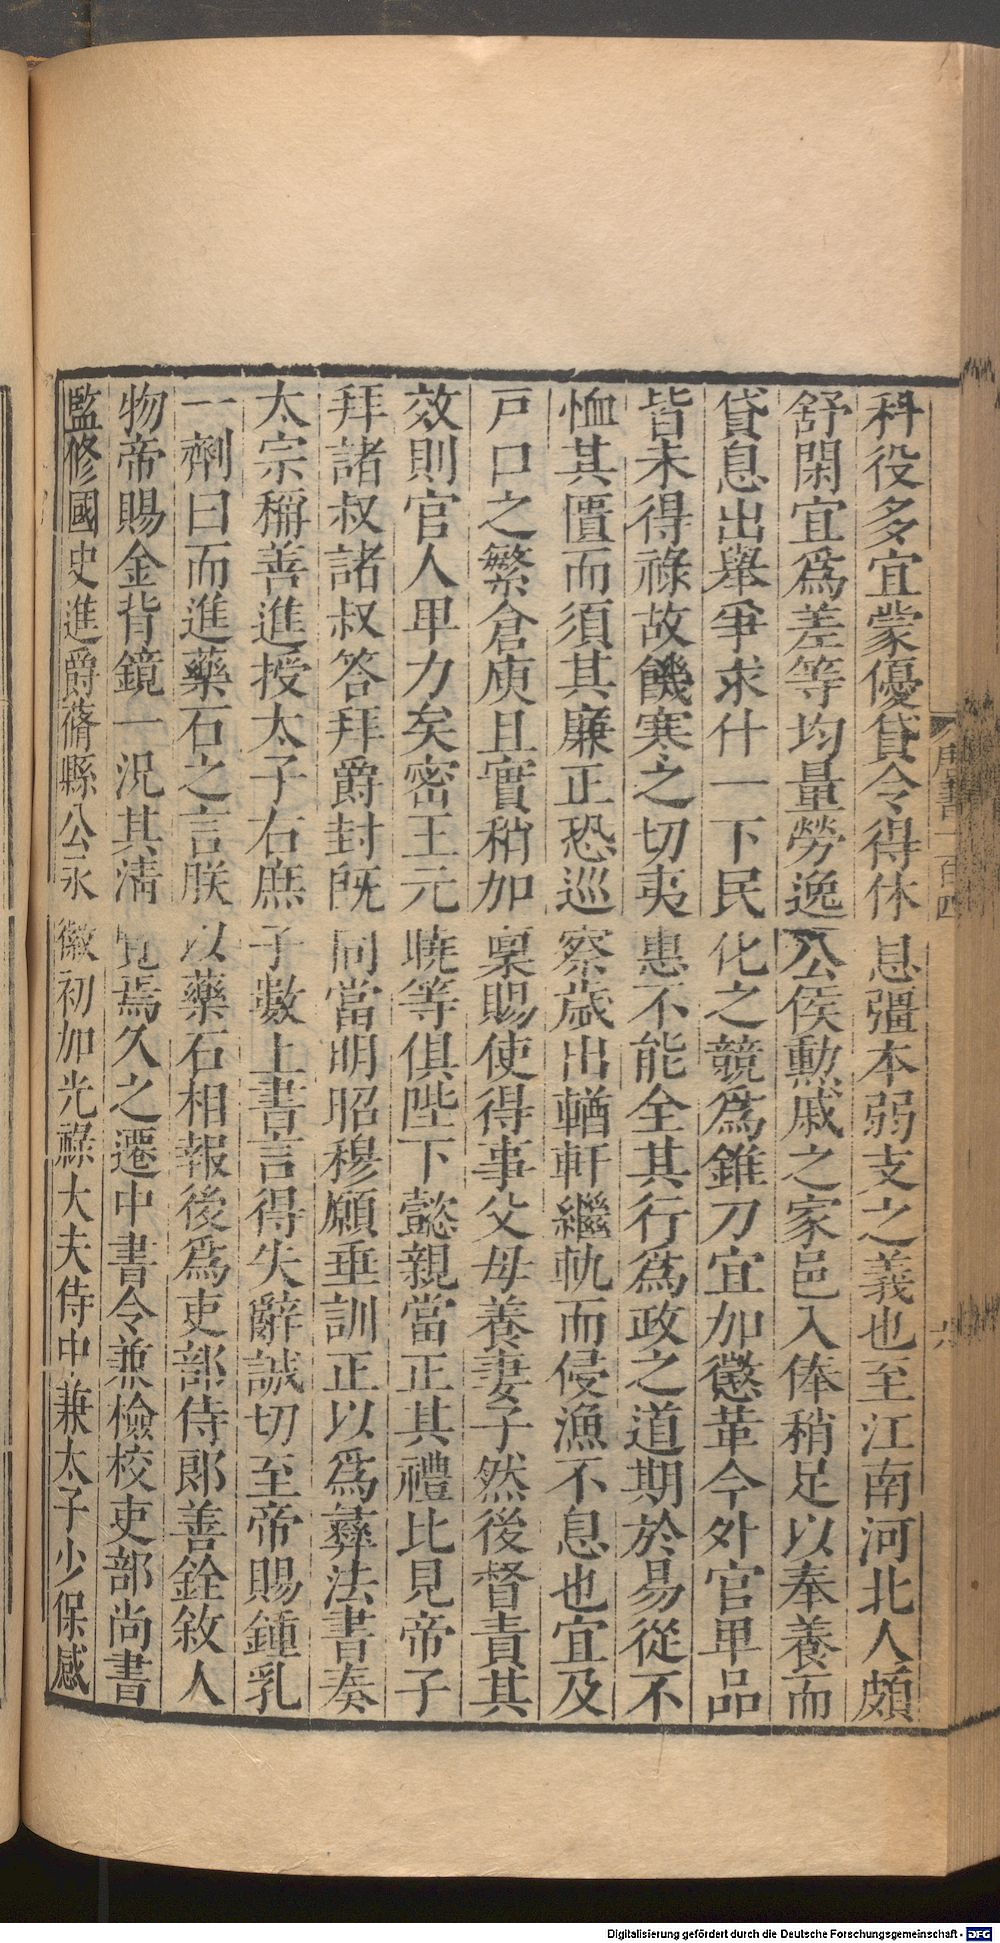 科役多宜蒙優貸令得休息彊本弱支之義也至江南河北人頗
舒閑宜爲差等均量勞逸公侯勳戚之家邑入俸稍足以奉養而
貸息出舉爭求什一下民化之競爲錐刀宜加懲革今外官卑品
皆未得祿故饑寒之切夷惠不能全其行爲政之道期於易從不
恤其匱而須其廉正恐巡察歲出輶軒繼軌而侵漁不息也宜及
戸口之繁倉庾且實稍加稟賜使得事父母養妻子然後督責其
效則官人畢力矣密王元曉等俱陛下懿親當正其禮比見帝子
拜諸叔諸叔答拜爵封旣同當明昭穆願垂訓正以爲彝法書奏
太宗稱善進授太子右庶子數上書言得失辭誠切至帝賜鍾乳
一劑曰而進藥石之言朕以藥石相報後爲吏部侍郞善銓敘人
物帝賜金背鏡一況其清覽焉久之遷中書令兼檢校吏部尚書
監修國史進爵蓨縣公永徽初加光祿大夫侍中兼太子少保感
唐書一百四
六
Digitalisierung gefördert durch die Deutsche Forschungsgemeinschaft - DFG